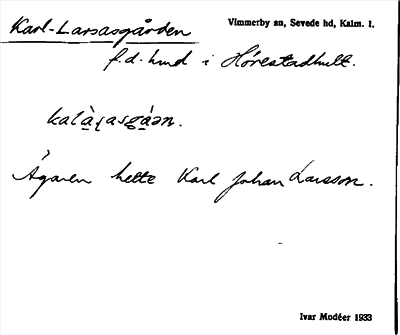 Karl-Larsasgården
Vimmerby sn, Sevede hd, Kalm. l.
f.d. hmd i Hörestadhult.
Ägaren hette Karl Johan Larsson.
Ivar Modéer 1933